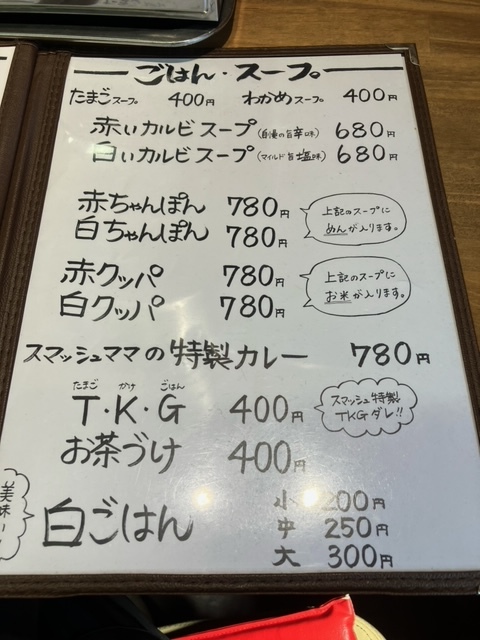 ごはん・スープ
たまごスープ 400円 わかめスープ 400円
赤いカルビスープ(自慢の旨辛味) 680円
白いカルビスープ(マイルド旨塩味) 680円
赤ちゃんぽん 780円
白ちゃんぽん 780円
上記のスープに
めんが入ります。
赤クッパ 780円
白クッパ 780円
上記のスープに
お米が入ります。
スマッシュママの特製カレー 780円
たまご かけ ごはん
T・K・G 400円
スマッシュ特製
TKGダレ!!
お茶づけ 400円
美味
白ごはん
小 200円
中 250円
大 300円